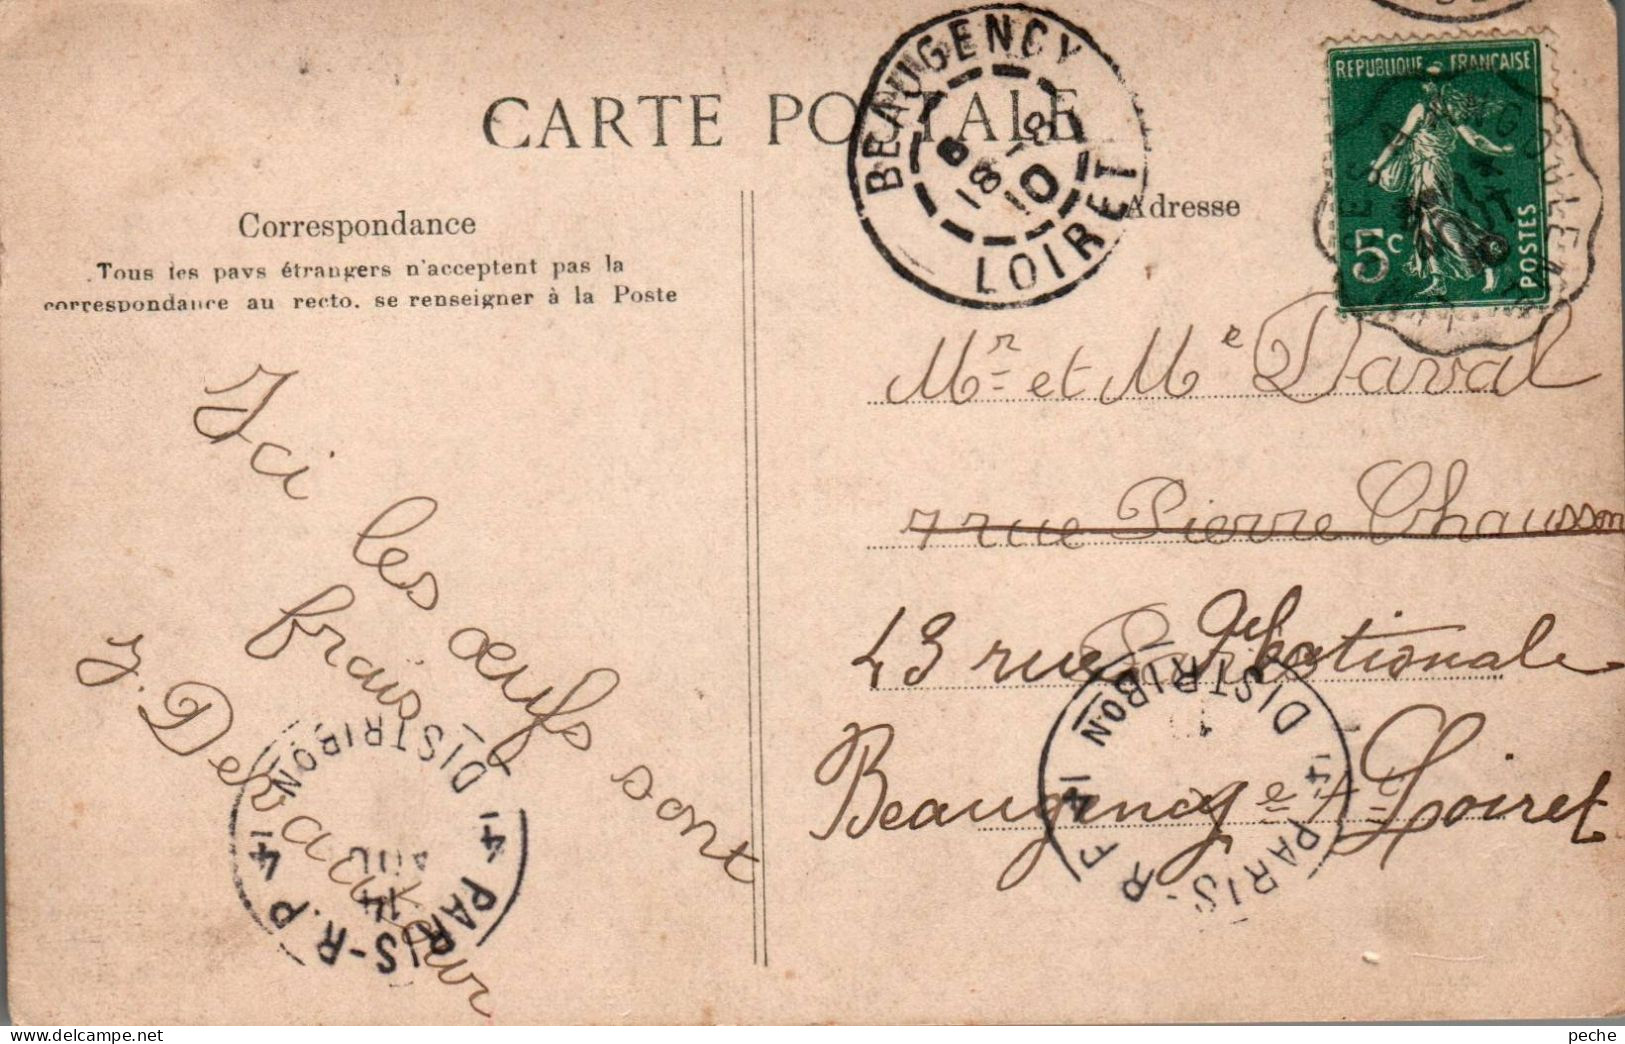 CARTE POSTALE
BEAUGENCY
LOIRET
6
18 - 8
10
REPUBLIQUE FRANÇAISE
5c
POSTES
Correspondance
Tous les pays étrangers n'acceptent pas la
correspondance au recto. se renseigner à la Poste
Adresse
Ici
les œufs sont
frais
J. Devaukour
Mr et Me Daval
7 rue Pierre Chausson
Paris
43 rue Nationale
Beaugency Loiret
PARIS-R.P 4
DISTRIBON
14
AOU
PARIS-R P
DISTRIBON
peche